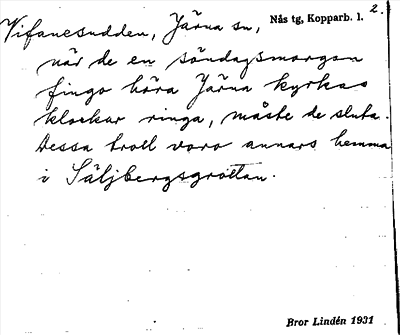 2.
Vifanesudden, Järna sn, Nås tg, Kopparb. l.
när de en söndagsmorgon
fingo höra Järna kyrkas
klockor ringa, måste de sluta.
Dessa troll voro annars hemma
i Säljbergsgrottan.
Bror Lindén 1931